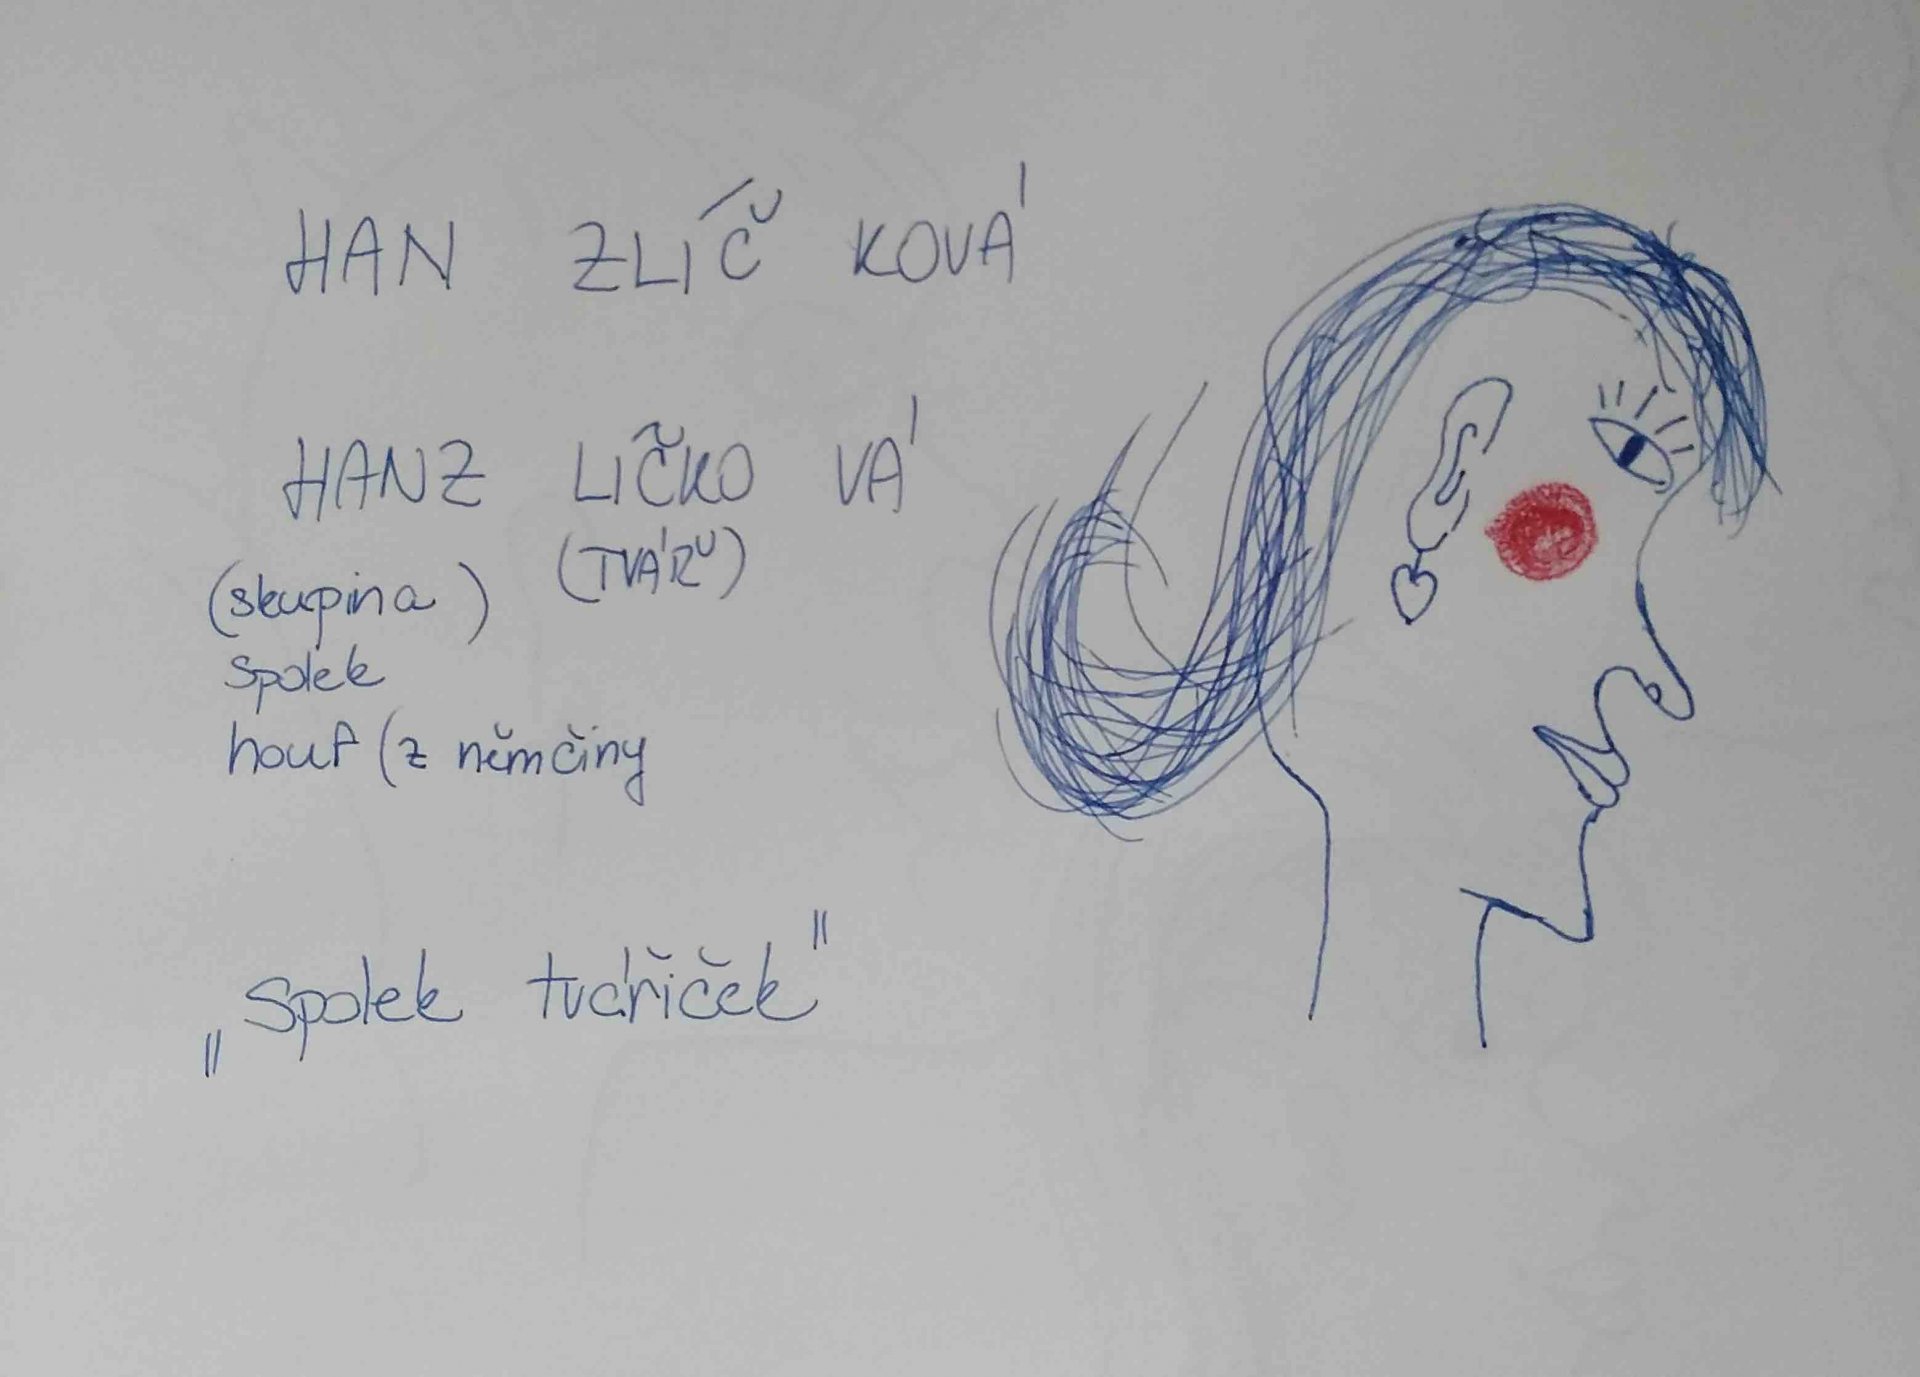 HAN ZLÍČ KOVÁ
HANZ LIČKO VÁ
(skupina) (TVÁŘŮ)
spolek
houf (z němčiny
„Spolek tvářiček"